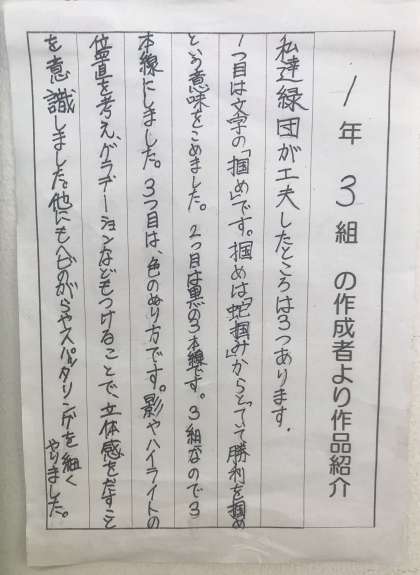 1年 3組 の作成者より作品紹介
私達緑団が工夫したところは3つあります.
1つ目は文字の「掴め」です。掴めは「蛇掴み」からとっていて勝利を掴め
という意味をこめました。2つ目は黒の3本線です。3組なので3
本線にしました。3つ目は、色のぬり方です。影やハイライトの
位置を考え、グラデーションなどもつけることで、立体感をだすこと
を意識しました。他にものがらやスパッタリングを細く
やりました。